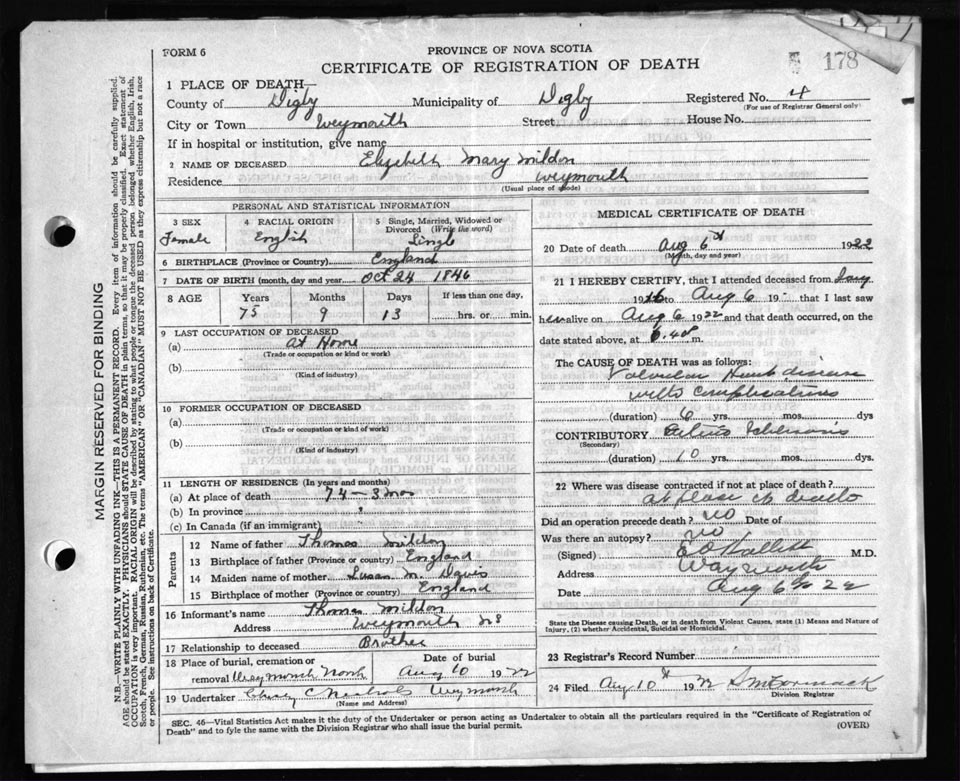 178
FORM 6
PROVINCE OF NOVA SCOTIA
CERTIFICATE OF REGISTRATION OF DEATH
1 PLACE OF DEATH
County of Digby Municipality of Digby Registered No. 4
(For use of Registrar General only)
City or Town Weymouth Street House No.
If in hospital or institution, give name
2 NAME OF DECEASED Elizabeth Mary Mildon
Residence Weymouth
(Usual place of abode)
PERSONAL AND STATISTICAL INFORMATION
3 SEX Female
4 RACIAL ORIGIN English
5 Single, Married, Widowed or Divorced (Write the word) Single
6 BIRTHPLACE (Province or Country) England
7 DATE OF BIRTH (month, day and year) Oct 24 1846
8 AGE Years Months Days If less than one day,
75 9 13 hrs. or min.
9 LAST OCCUPATION OF DECEASED
(a) At Home
(Trade or occupation or kind or work)
(b)
(Kind of industry)
10 FORMER OCCUPATION OF DECEASED
(a)
(Trade or occupation or kind of work)
(b)
(Kind of industry)
11 LENGTH OF RESIDENCE (In years and months)
(a) At place of death 74 - 3 mos
(b) In province
(c) In Canada (if an immigrant)
Parents
12 Name of father Thomas Mildon
13 Birthplace of father (Province or country) England
14 Maiden name of mother Susan M. Davis
15 Birthplace of mother (Province or country) England
16 Informant's name Thomas Mildon
Address Weymouth NS
17 Relationship to deceased Brother
18 Place of burial, cremation or removal Weymouth North
Date of burial Aug 10 1922
19 Undertaker Nichols Weymouth
(Name and Address)
MEDICAL CERTIFICATE OF DEATH
20 Date of death Aug 6th 1922
(Month, day and year)
21 I HEREBY CERTIFY, that I attended deceased from
1916 to Aug 6 19 that I last saw
her alive on Aug 6 1922 and that death occurred, on the
date stated above, at m.
The CAUSE OF DEATH was as follows:
Valvular Heart disease
with complications
(duration) 6 yrs. mos. dys
CONTRIBUTORY
(Secondary)
(duration) 10 yrs. mos. dys.
22 Where was disease contracted if not at place of death?
at place of death
Did an operation precede death? no Date of
Was there an autopsy? no
(Signed) M.D.
Address Weymouth
Date Aug 6th 22
State the Disease causing Death, or in death from Violent Causes, state (1) Means and Nature of
Injury, (2) whether Accidental, Suicidal or Homicidal.
23 Registrar's Record Number
24 Filed Aug 10th 1922 McCormack
Division Registrar
SEC. 46—Vital Statistics Act makes it the duty of the Undertaker or person acting as Undertaker to obtain all the particulars required in the "Certificate of Registration of
Death" and to fyle the same with the Division Registrar who shall issue the burial permit. (OVER)
MARGIN RESERVED FOR BINDING
N.B.—WRITE PLAINLY WITH UNFADING INK—THIS IS A PERMANENT RECORD. Every item of information should be carefully supplied.
AGE should be stated EXACTLY. PHYSICIANS should STATE CAUSE OF DEATH in plain terms, so that it may be properly classified. Exact statement of
OCCUPATION is very important. RACIAL ORIGIN will be described by stating to what people or tongue the deceased person belonged whether English, Irish,
Scotch, French, German, Russian, Ruthenian, etc. The terms "AMERICAN" OR "CANADIAN" MUST NOT BE USED as they express citizenship but not a race
or people. See instructions on back of Certificate.